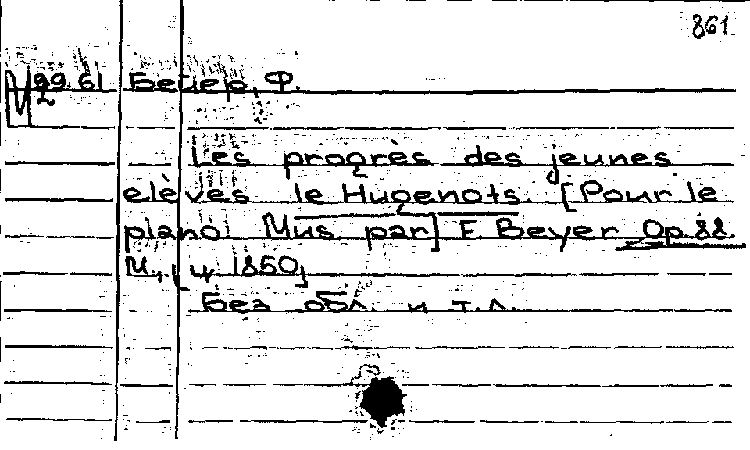 861
М 99 61 Бейер, Ф.
2
Les progrès des jeunes
elèves le Hugenots. [Pour le
piano. Mus par] F Beyer Op. 88.
М., [ц 1850]
Без обл. и т.л.